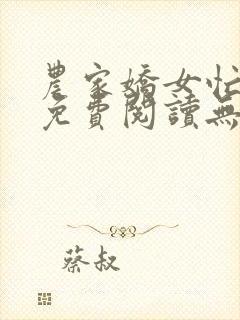 農家嬌女忙
免費閱讀無
蔡叔